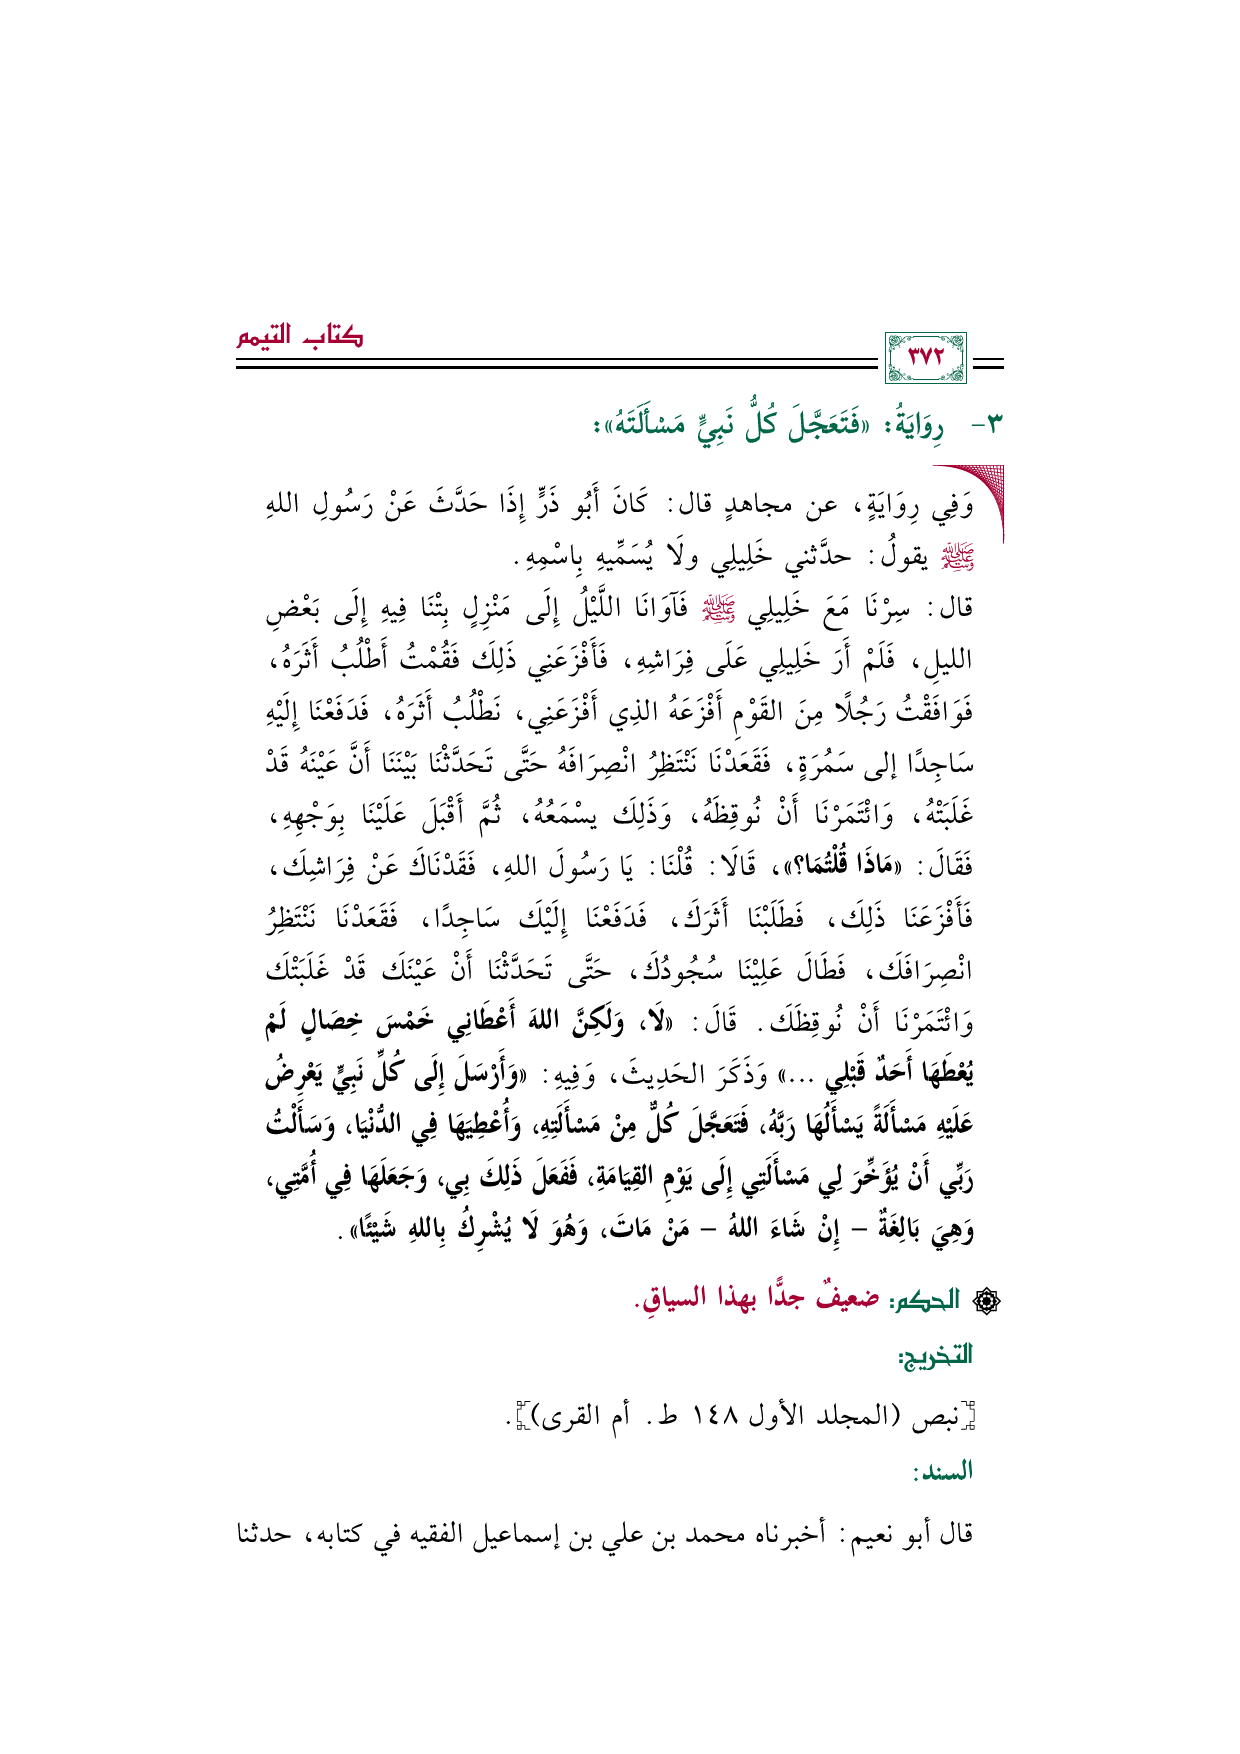 كتاب التيمم
٣٧٢
٣- رِوَايَةُ: «فَتَعَجَّلَ كُلُّ نَبِيٍّ مَسْأَلَتَهُ»:
وَفِي رِوَايَةٍ، عن مجاهدٍ قال: كَانَ أَبُو ذَرٍّ إِذَا حَدَّثَ عَنْ رَسُولِ اللهِ
ﷺ يقولُ: حدَّثني خَلِيلِي ولَا يُسَمِّيهِ بِاسْمِهِ.
قال: سِرْنَا مَعَ خَلِيلِي ﷺ فَآوَانَا اللَّيْلُ إِلَى مَنْزِلٍ بِتْنَا فِيهِ إِلَى بَعْضِ
الليلِ، فَلَمْ أَرَ خَلِيلِي عَلَى فِرَاشِهِ، فَأَفْزَعَنِي ذَلِكَ فَقُمْتُ أَطْلُبُ أَثَرَهُ،
فَوَافَقْتُ رَجُلًا مِنَ القَوْمِ أَفْزَعَهُ الذِي أَفْزَعَنِي، نَطْلُبُ أَثَرَهُ، فَدَفَعْنَا إِلَيْهِ
سَاجِدًا إلى سَمُرَةٍ، فَقَعَدْنَا نَنْتَظِرُ انْصِرَافَهُ حَتَّى تَحَدَّثْنَا بَيْنَنَا أَنَّ عَيْنَهُ قَدْ
غَلَبَتْهُ، وَائْتَمَرْنَا أَنْ نُوقِظَهُ، وَذَلِكَ يسْمَعُهُ، ثُمَّ أَقْبَلَ عَلَيْنَا بِوَجْهِهِ،
فَقَالَ: «مَاذَا قُلْتُمَا؟»، قَالَا: قُلْنَا: يَا رَسُولَ اللهِ، فَقَدْنَاكَ عَنْ فِرَاشِكَ،
فَأَفْزَعَنَا ذَلِكَ، فَطَلَبْنَا أَثَرَكَ، فَدَفَعْنَا إِلَيْكَ سَاجِدًا، فَقَعَدْنَا نَنْتَظِرُ
انْصِرَافَكَ، فَطَالَ عَلِيْنَا سُجُودُكَ، حَتَّى تَحَدَّثْنَا أَنْ عَيْنَكَ قَدْ غَلَبَتْكَ
وَائْتَمَرْنَا أَنْ نُوقِظَكَ. قَالَ: «لَا، وَلَكِنَّ اللهَ أَعْطَانِي خَمْسَ خِصَالٍ لَمْ
يُعْطَهَا أَحَدٌ قَبْلِي ...» وَذَكَرَ الحَدِيثَ، وَفِيهِ: «وَأَرْسَلَ إِلَى كُلِّ نَبِيٍّ يَعْرِضُ
عَلَيْهِ مَسْأَلَةً يَسْأَلُهَا رَبَّهُ، فَتَعَجَّلَ كُلٌّ مِنْ مَسْأَلَتِهِ، وَأُعْطِيَهَا فِي الدُّنْيَا، وَسَأَلْتُ
رَبِّي أَنْ يُؤَخِّرَ لِي مَسْأَلَتِي إِلَى يَوْمِ القِيَامَةِ، فَفَعَلَ ذَلِكَ بِي، وَجَعَلَهَا فِي أُمَّتِي،
وَهِيَ بَالِغَةٌ – إِنْ شَاءَ اللهُ – مَنْ مَاتَ، وَهُوَ لَا يُشْرِكُ بِاللهِ شَيْئًا».
الحكم: ضعيفٌ جدًّا بهذا السياقِ.
التخريج:
[نبص (المجلد الأول ١٤٨ ط. أم القرى)].
السند:
قال أبو نعيم: أخبرناه محمد بن علي بن إسماعيل الفقيه في كتابه، حدثنا